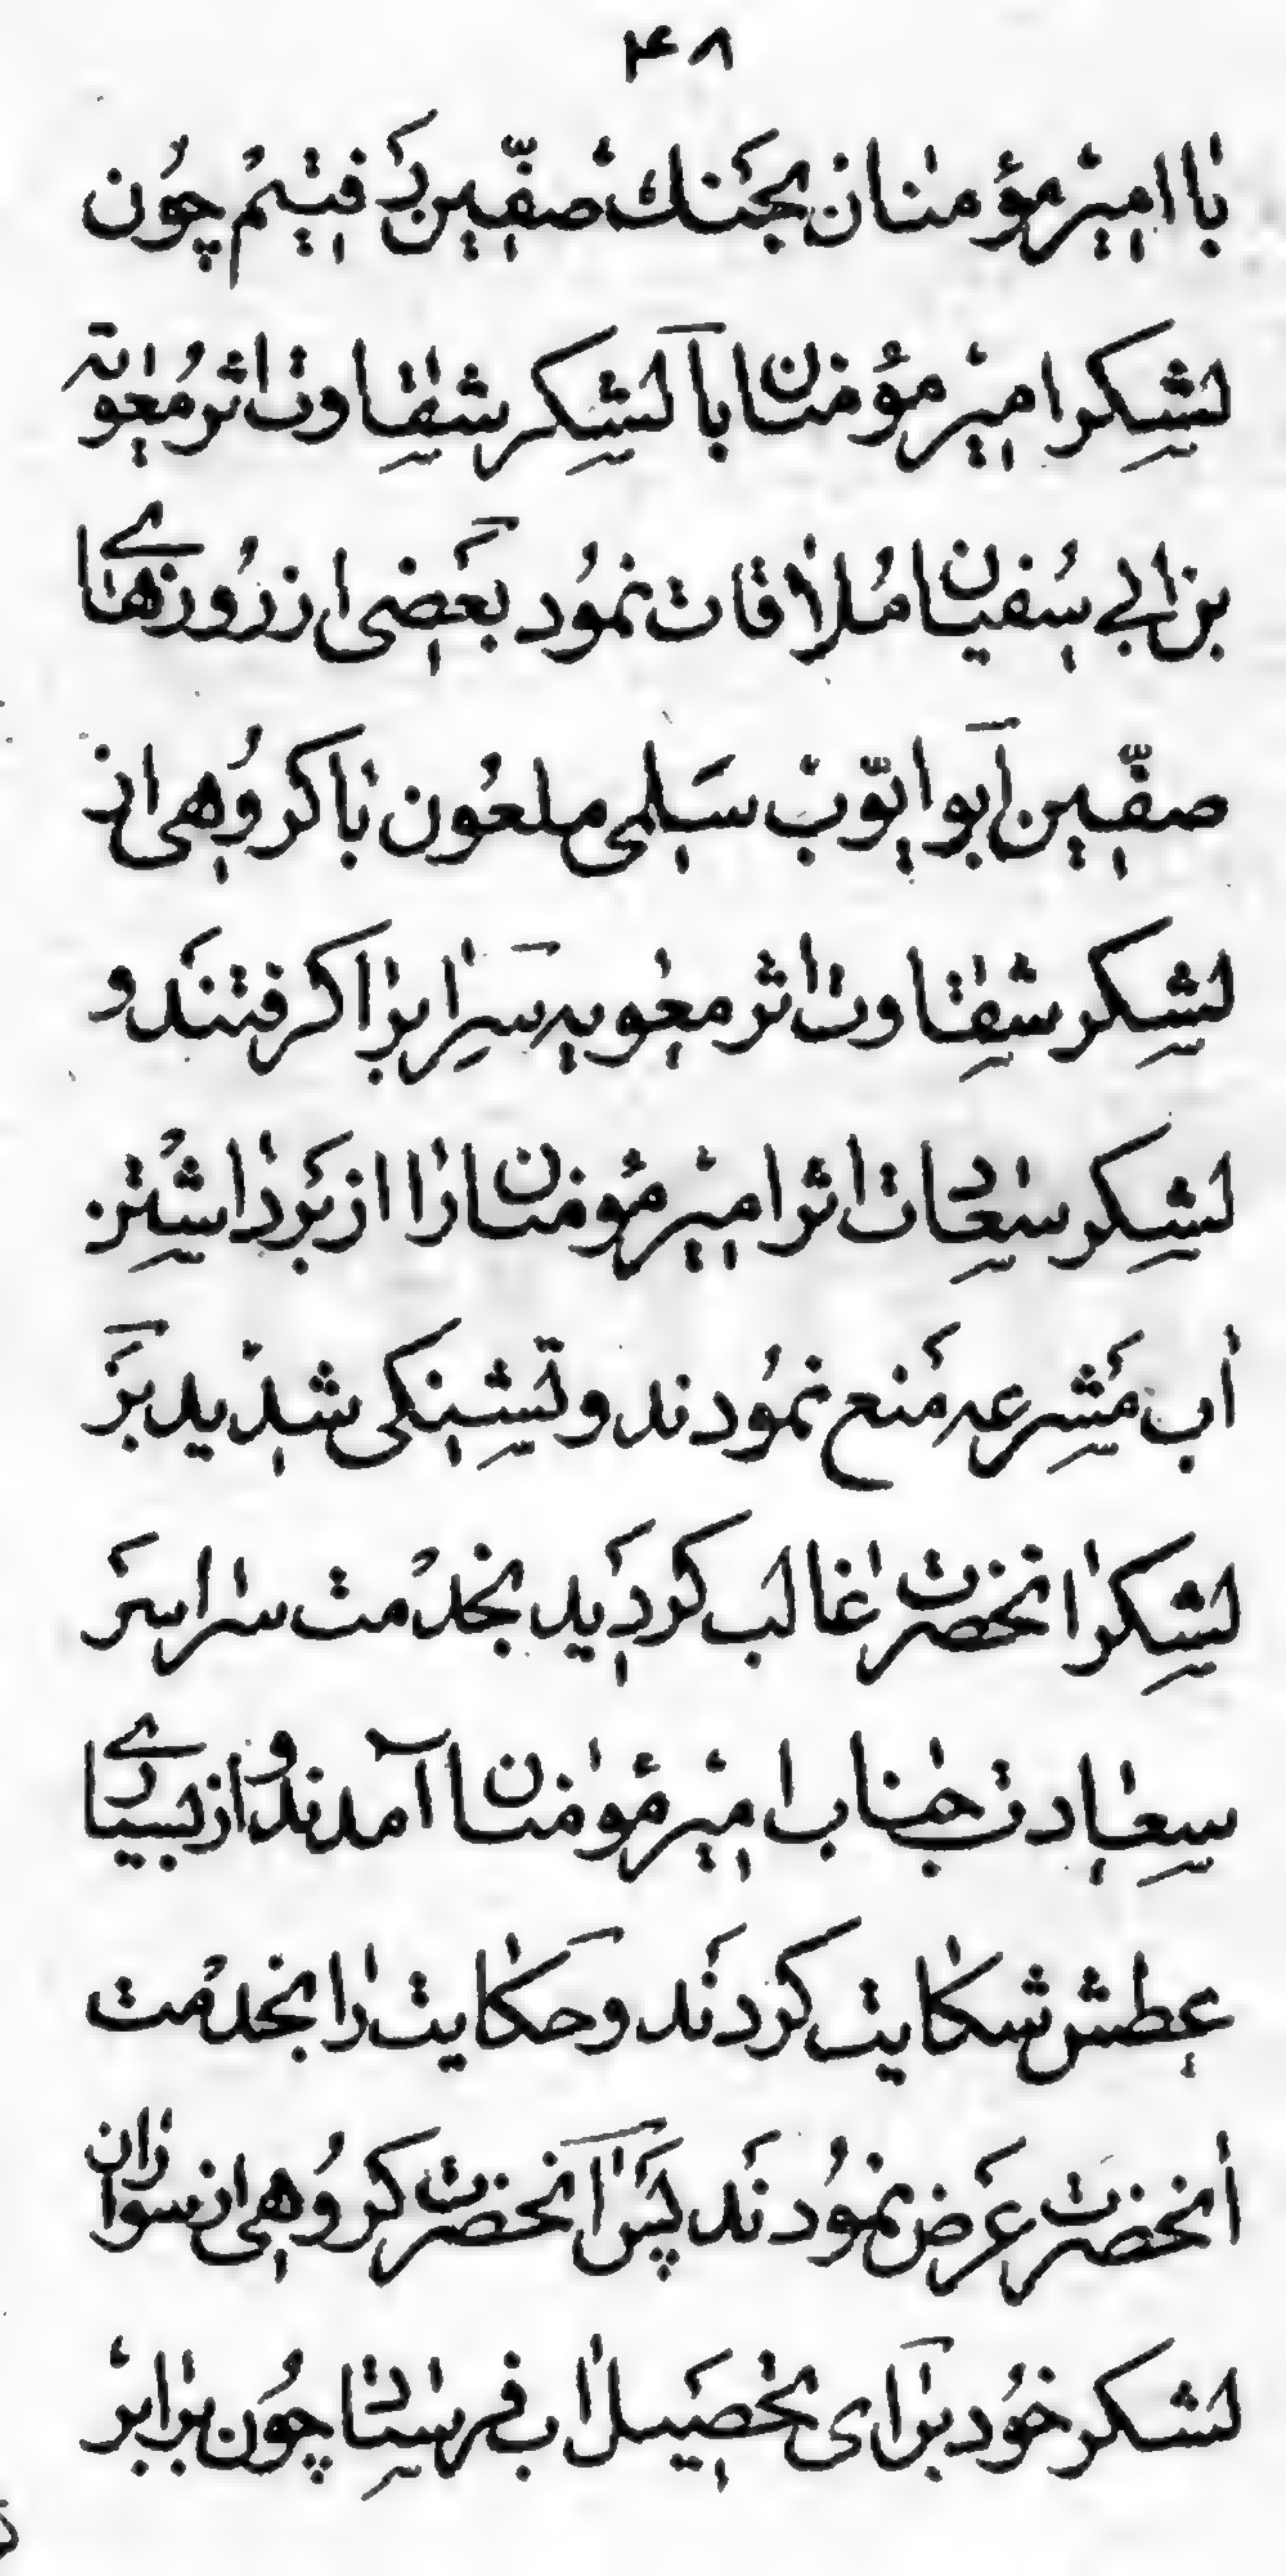 ۴۸
با امیر مؤمنان بجنك صفّین رفتیم چون
لشکر امیر مؤمنان با لشکر شقاوت اثر معویه
بن ابی سفیان ملاقات نمود بعضی از روزهای
صفّین ابو ایّوب سلمی ملعون با کروهی از
لشکر شقاوت اثر معویه سر ابرا کرفتند و
لشکر سعادت اثر امیر مؤمنان را از برداشتن
اب مشرعه منع نمودند و تشنکی شدید بر
لشکر انحضرت غالب کردید بخدمت سراسر
سعادت جناب امیر مؤمنان آمدند و از بسیاری
عطش شکایت کردند و حکایت را بخدمت
انحضرت عرض نمودند پس انحضرت کروهی از سواران
لشکر خود برای تحصیل اب فرستاد چون برابر